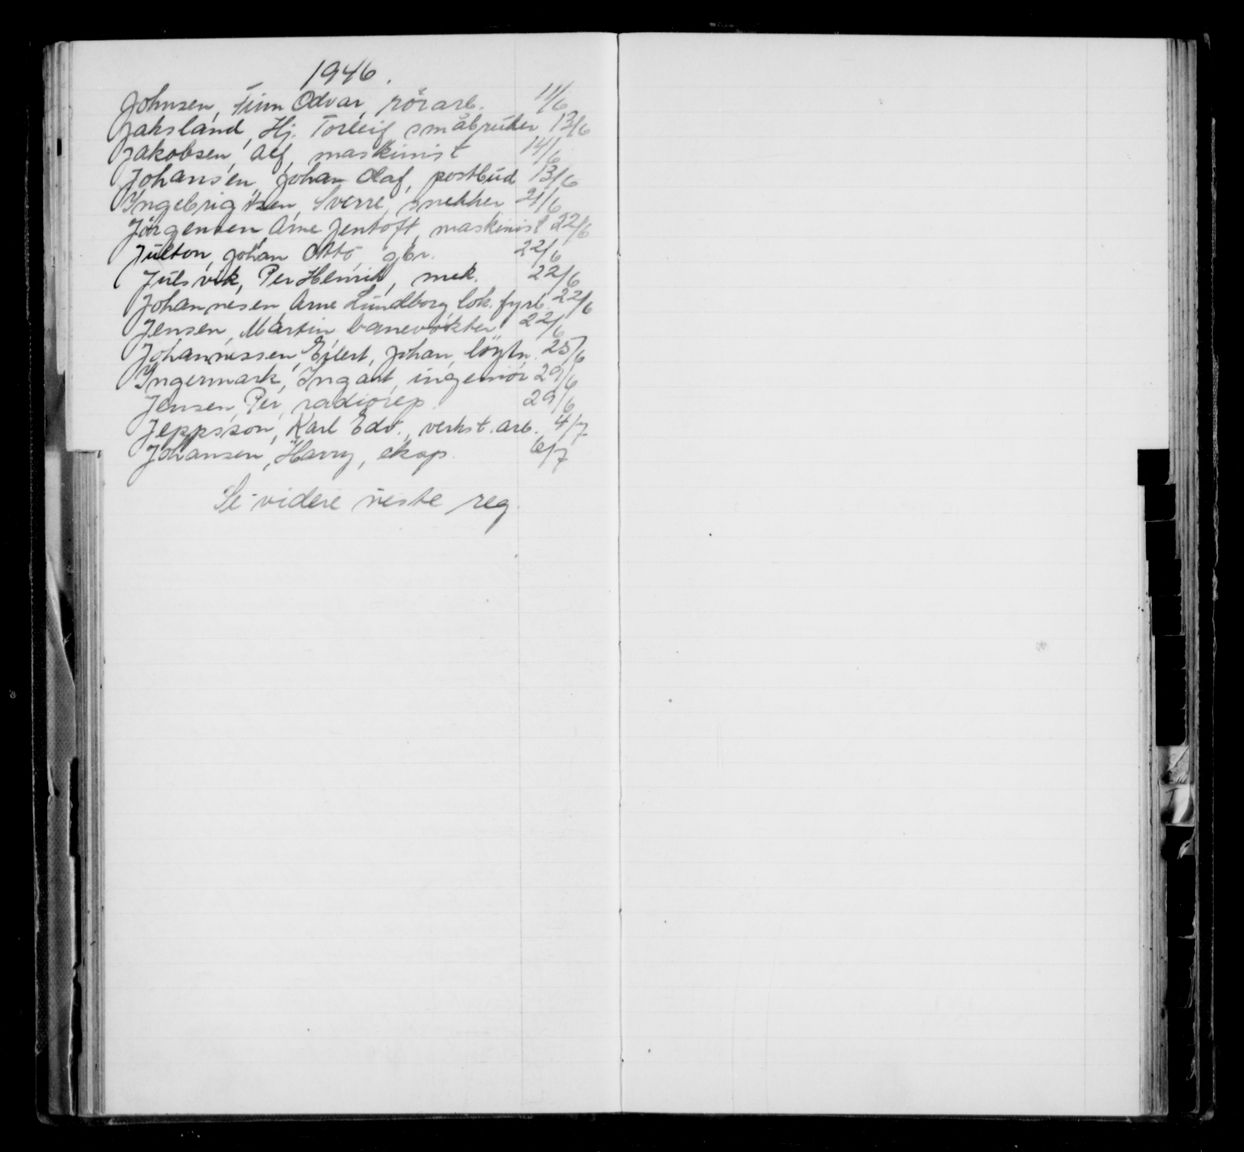 1946.
Johnsen, Finn Odvar, rörarb. 11/6
Jaksland, Hj. Torleif småbruker 13/6
Jakobsen, Alf, maskinist 14/6
Johansen, Johan Olaf, postbud 13/6
Ingebrigtsen, Sverre, snekker 21/6
Jörgensen Arne Jentoft, maskinist 22/6
Julton, Johan Otto, gbr. 22/6
Julsvik, Per Henrik, mek. 22/6
Johannesen, Arne Lundborg, lok. fyrb. 22/6
Jensen, Martin banevokter 22/6
Johannessen, Eilert, Johan, löytn. 25/6
Ingermark, Ingart, ingeniör 29/6
Jensen, Per, radiorep. 29/6
Jeppsson, Karl Edv., verkst. arb. 4/7
Johansen, Harry, eksp. 6/7
Se videre neste reg.